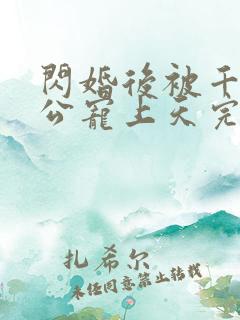 閃婚後被千
公寵上天完
扎希尔
未经同意禁止转载